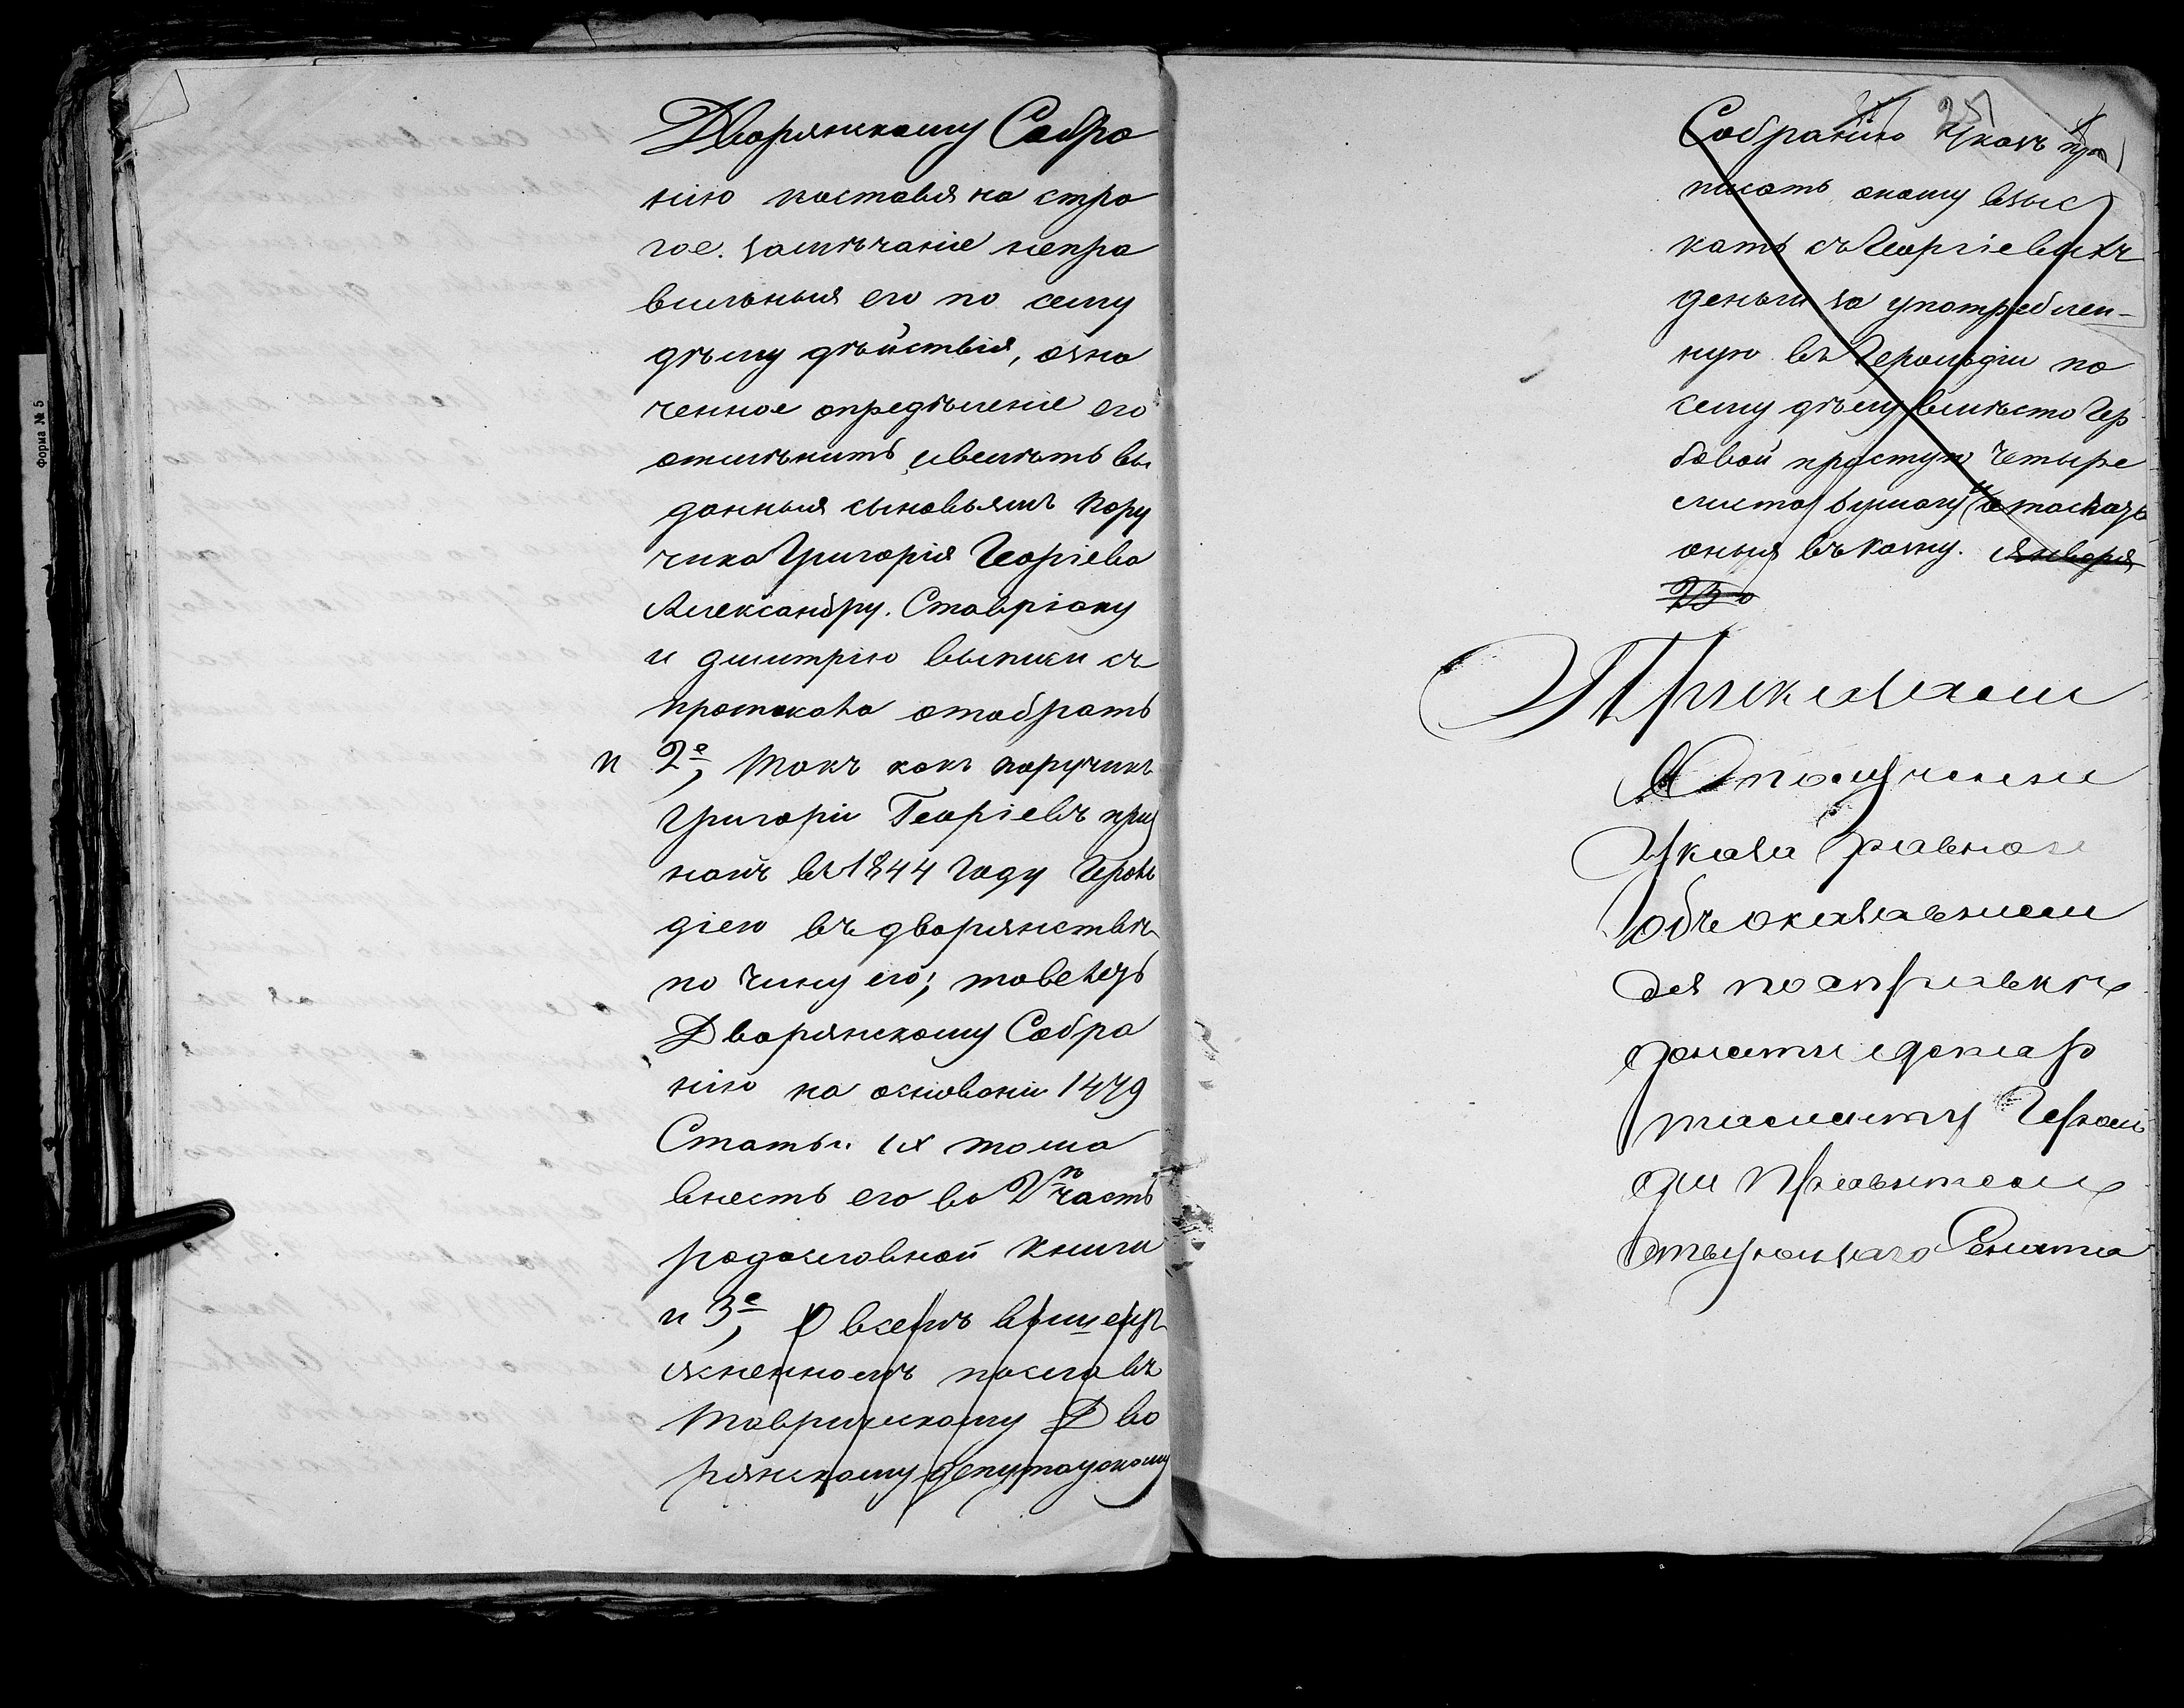 Дворянскому Собра
нію поставя на стро
гое замѣчаніе непра
вильныя его по сему
дѣлу дѣйствія, озна
ченное опредѣленіе его
отмѣнить, и велѣть вы
данныя сыновьямъ Пору
чика Григорія Георгіева
Александру. Ставріону
и Дмитрію выписи съ
протокола отобрать
и 2е, Такъ какъ поручикъ
Григорій Георгіевъ приз
нанъ въ 1844 году Героль
діею въ дворянствѣ
по чину его; то велѣть
Дворянскому Собра
нію на основаніи 1479
Статьи IX тома
внесть его во 2ю часть
родословной книги
и 3е, О всемъ вышеизъ
ясненномъ пославъ
Таврическому Дво
рянскому депутатскому
25
Собранію Указъ пред
писать оному взыс
кать съ Георгіевыхъ
деньги за употреблен-
ную въ Герольдіи по
сему дѣлу вмѣсто Гер
бовой простую четыре
листа бумагу и отослать
оныя въ казну. Января
23
Приказали
О получении
Указа равно и
объ оказавшемся
по справкѣ
донести Депар
таменту Героль
діи Правитель
ствующаго Сената